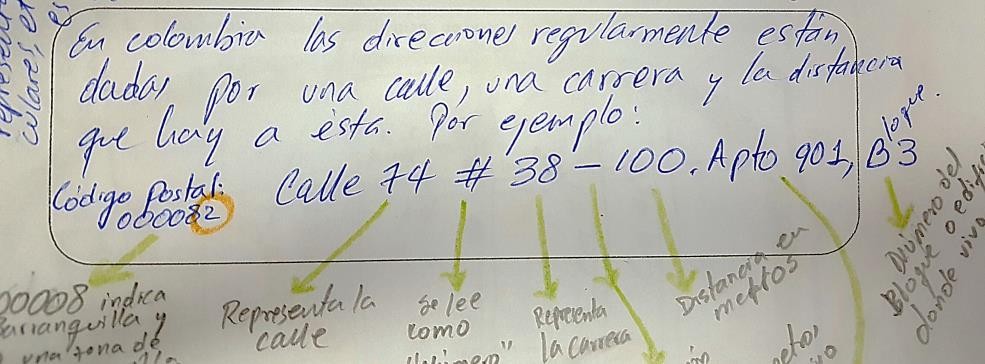 En colombia las direcciones regularmente están
dadas por una calle, una carrera y la distancia
que hay a ésta. Por ejemplo:
Calle 74 # 38 – 100. Apto 901, B3
loque.
Código Postal:
000082
00008 indica
Barranquilla y
una zona de
Representa la
calle
se lee
como
Representa
la carrera
Distancia en
metros
Número del
Bloque o edifi
donde vivo